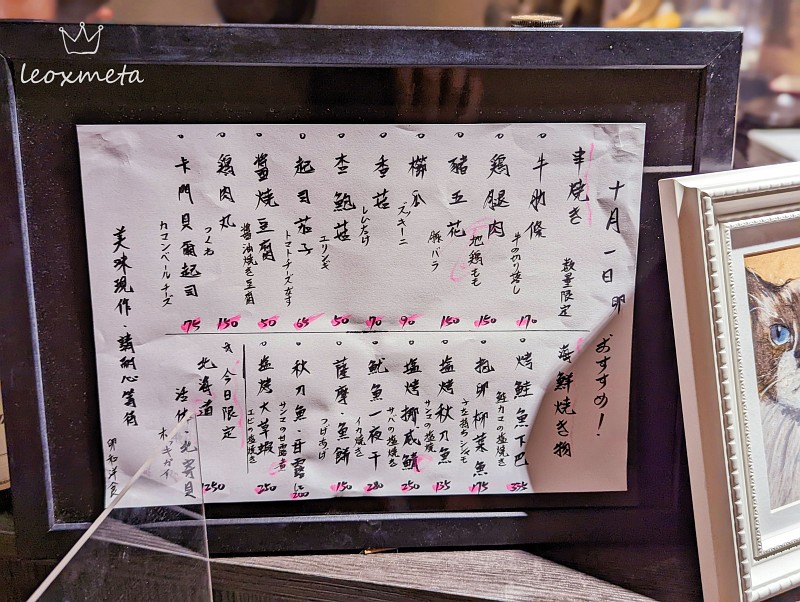 leoxmeta
十月一日 卯 おすすめ!
串焼き 数量限定
牛肋條 牛の切り落し 170
鶏腿肉 地鶏もも 150
豬五花 豚バラ 150
櫛瓜 ズッキーニ 90
香菇 しいたけ 70
杏鮑菇 エリンギ 50
起司茄子 トマトチーズなす 65
醬燒豆腐 醬油焼き豆腐 50
鶏肉丸 つくね 150
卡門貝爾起司 カマンベールチーズ 75
海鮮焼き物
烤鮭魚下巴 鮭カマの塩焼き 335
抱卵柳葉魚 子持ちシシャモ 175
塩烤秋刀魚 サンマの塩焼 135
塩烤挪威鯖 サバの塩焼き 250
魷魚一夜干 イカ焼き 280
薩摩・魚餅 つけあげ 150
秋刀魚・甘露煮 サンマの甘露煮 200
塩烤大草蝦 エビの塩焼き 250
今日限定
北海道 北寄貝 ホッキガイ 250
美味現作・請耐心等待
卯和洋食